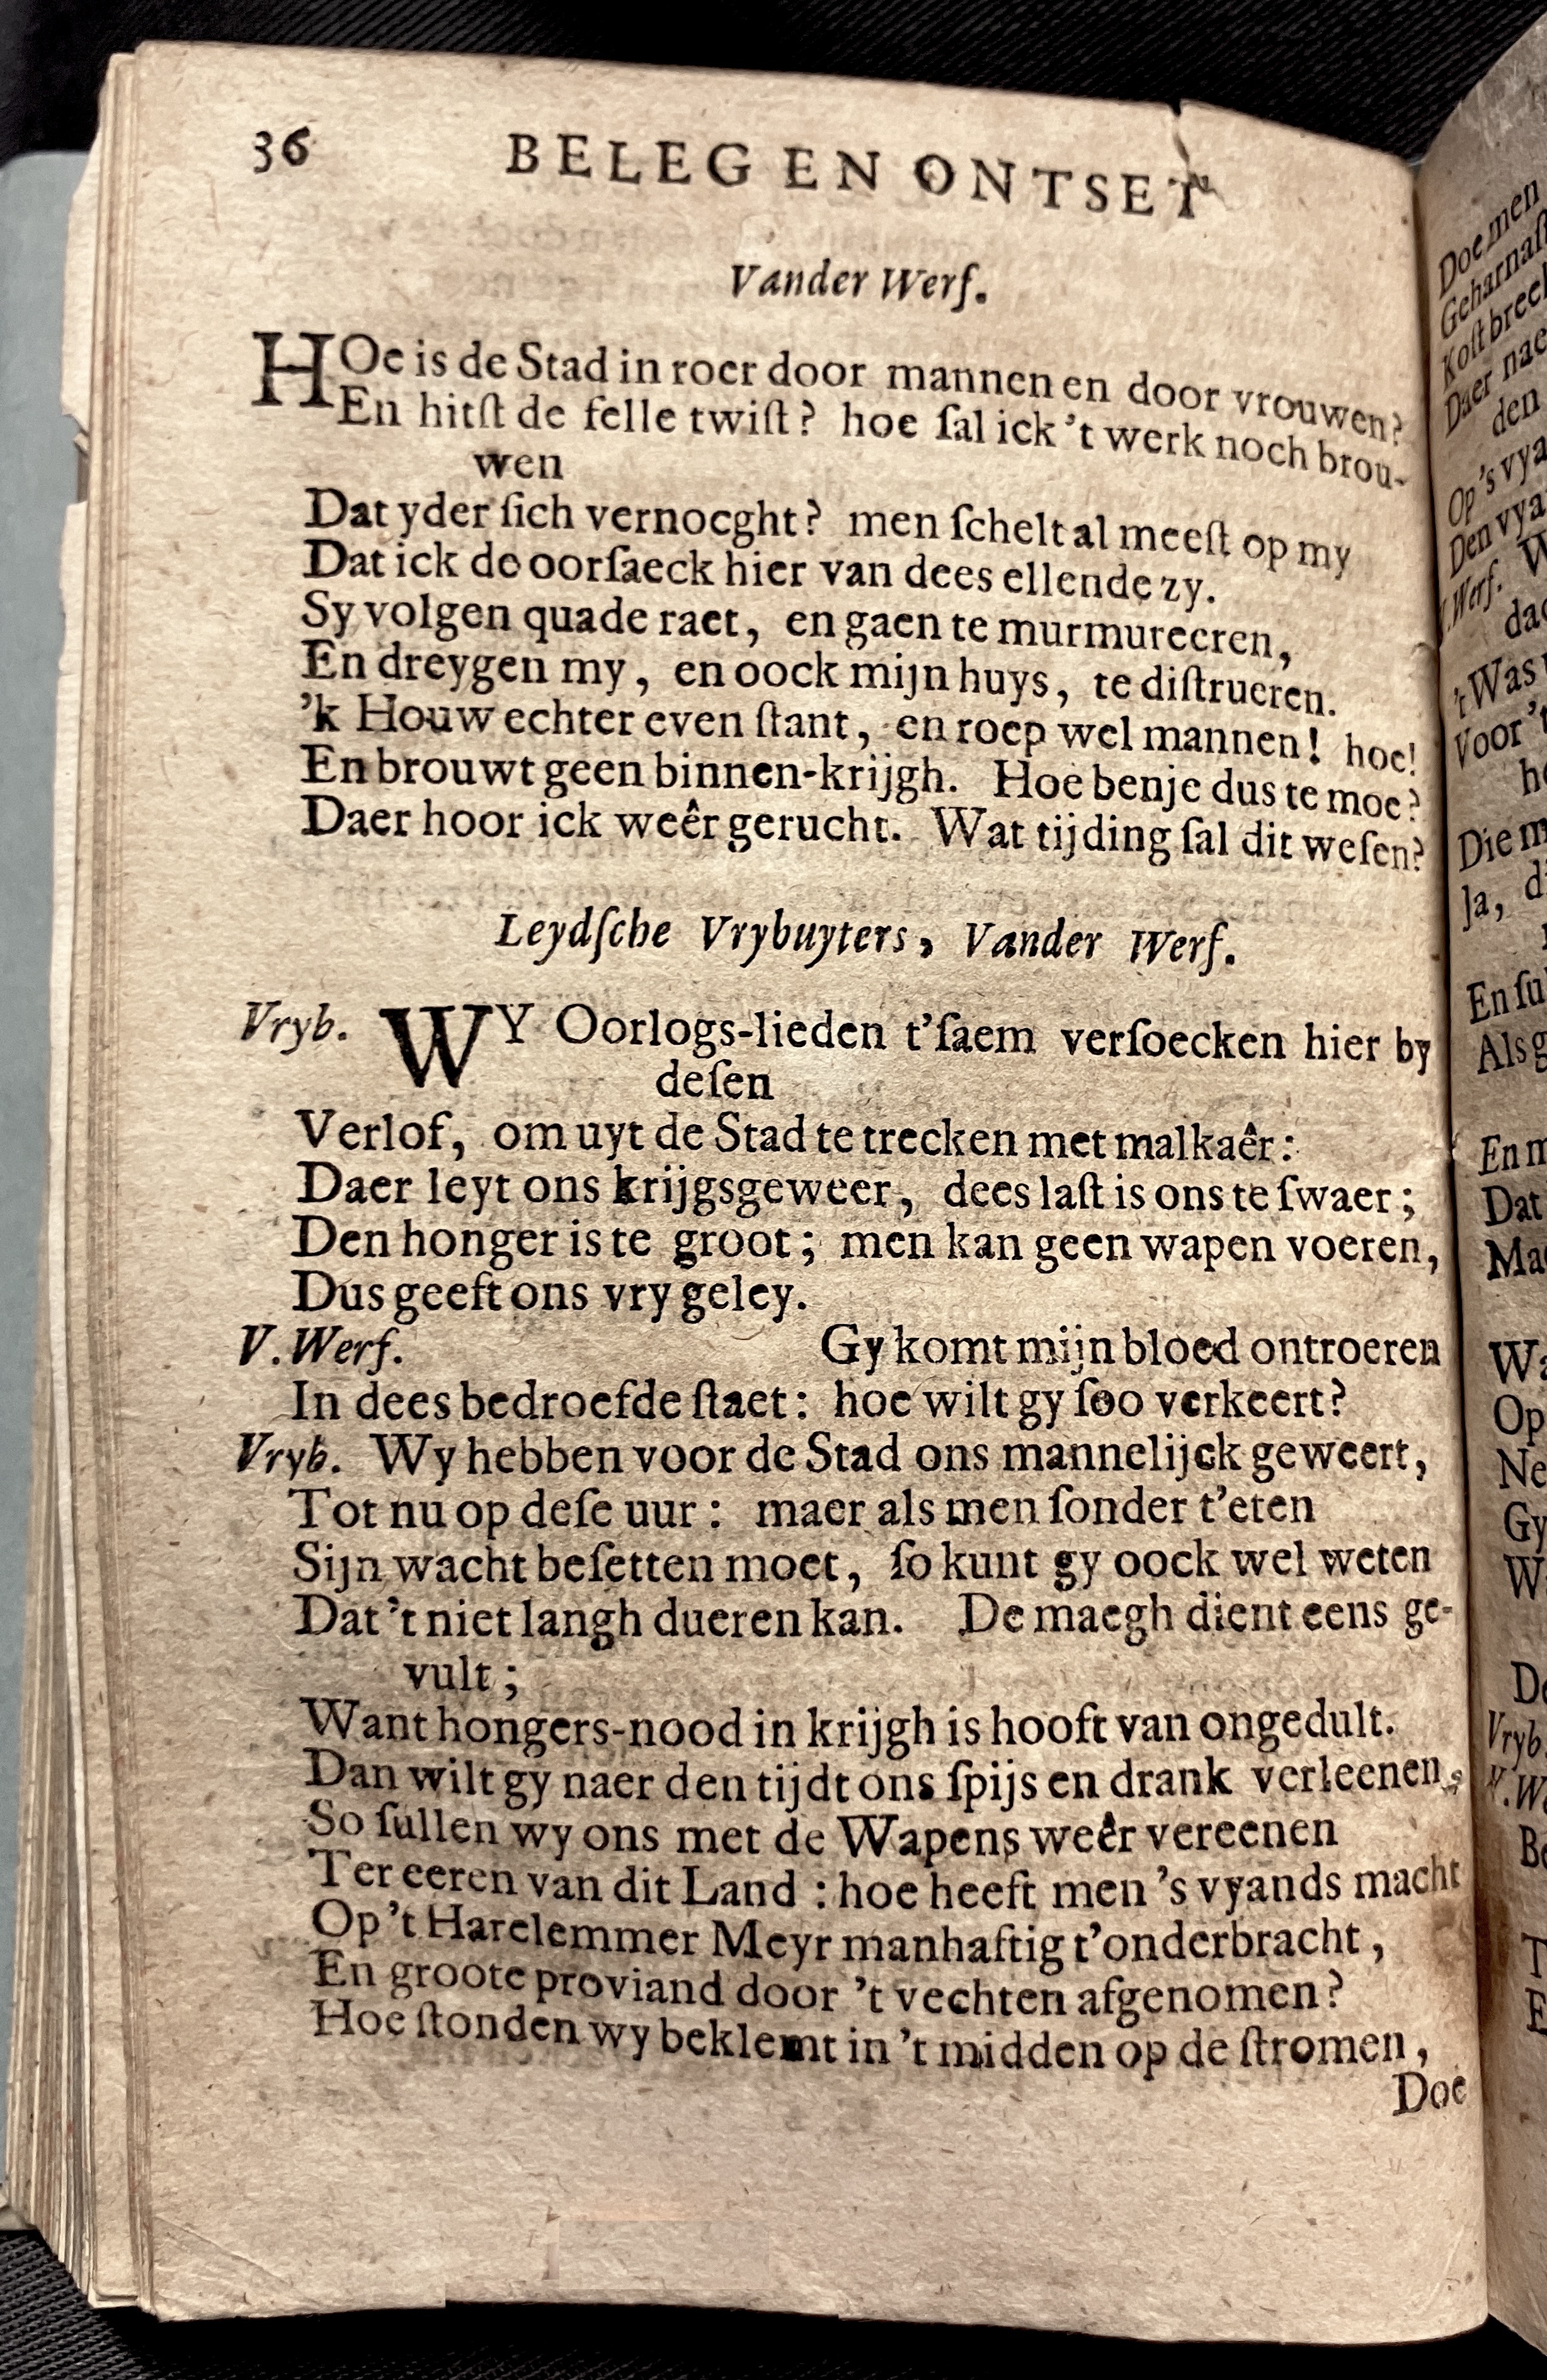 36 BELEG EN ONTSET
Vander Werf.
HOe is de Stad in roer door mannen en door vrouwen?
En hitſt de felle twiſt? hoe ſal ick 't werk noch brou-
wen
Dat yder ſich vernoeght? men ſchelt al meeſt op my
Dat ick de oorſaeck hier van dees ellende zy.
Sy volgen quade raet, en gaen te murmureeren,
En dreygen my, en oock mijn huys, te diſtrueren.
'k Houw echter even ſtant, en roep wel mannen! hoe!
En brouwt geen binnen-krijgh. Hoe benje dus te moe?
Daer hoor ick weêr gerucht. Wat tijding ſal dit weſen?
Leydſche Vrybuyters, Vander Werf.
Vryb. WY Oorlogs-lieden t'ſaem verſoecken hier by
deſen
Verlof, om uyt de Stad te trecken met malkaêr:
Daer leyt ons krijgsgeweer, dees laſt is ons te ſwaer;
Den honger is te groot; men kan geen wapen voeren,
Dus geeft ons vry geley.
V. Werf. Gy komt mijn bloed ontroeren
In dees bedroefde ſtaet: hoe wilt gy ſoo verkeert?
Vryb. Wy hebben voor de Stad ons mannelijck geweert,
Tot nu op deſe uur: maer als men ſonder t'eten
Sijn wacht beſetten moet, ſo kunt gy oock wel weten
Dat 't niet langh dueren kan. De maegh dient eens ge-
vult;
Want hongers-nood in krijgh is hooft van ongedult.
Dan wilt gy naer den tijdt ons ſpijs en drank verleenen,
So ſullen wy ons met de Wapens weêr vereenen
Ter eeren van dit Land: hoe heeft men 's vyands macht
Op 't Harelemmer Meyr manhaftig t'onderbracht,
En groote proviand door 't vechten afgenomen?
Hoe ſtonden wy beklemt in 't midden op de ſtromen,
Doe
Doe men
Koſt
Daer nae
den
Op 's
Werf.
't Was
Voor
Ja,
Als
Dat
Op
Gy
Vryb.